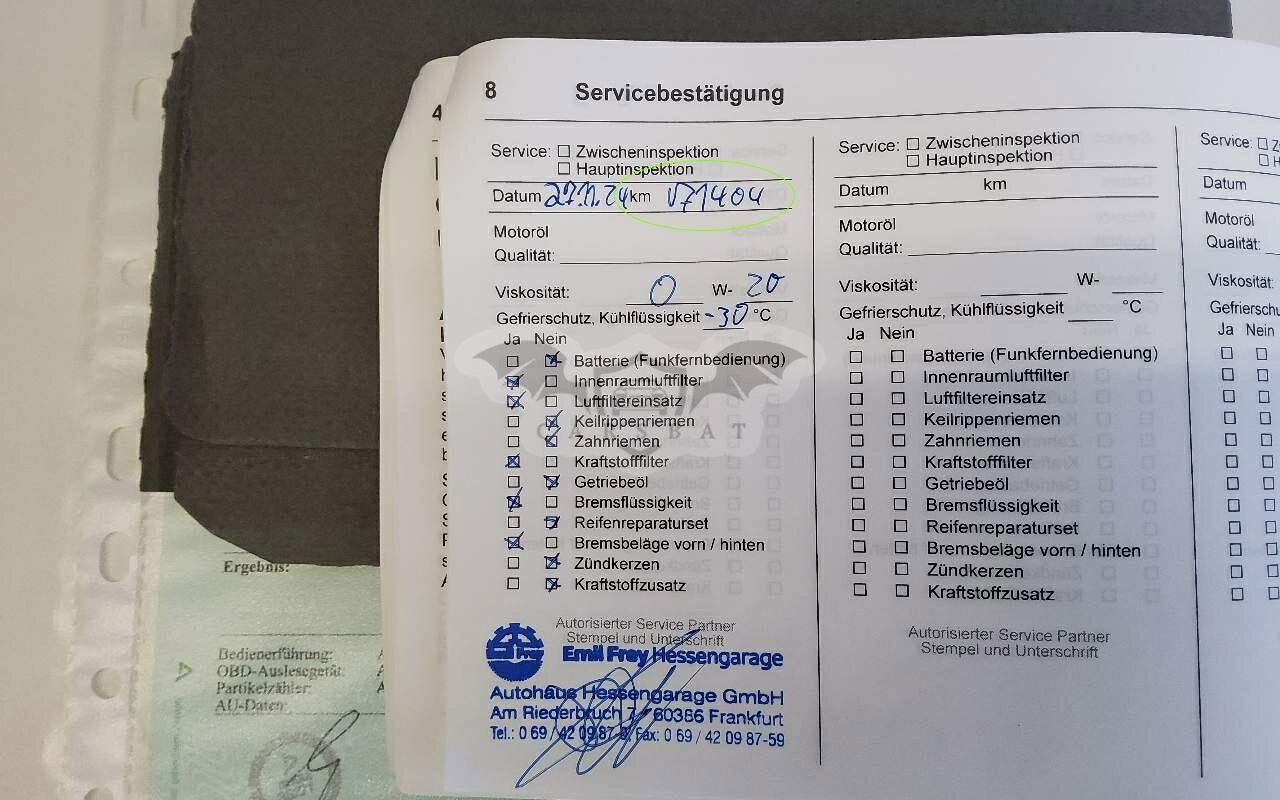 8 Servicebestätigung
4
Service: ☐ Zwischeninspektion
☐ Hauptinspektion
Datum 27.11.24 km 171404
Motoröl
Qualität:
Viskosität: 0 W- 20
Gefrierschutz, Kühlflüssigkeit -30 °C
Ja Nein
☐ ☒ Batterie (Funkfernbedienung)
☒ ☐ Innenraumluftfilter
☒ ☐ Luftfiltereinsatz
☐ ☒ Keilrippenriemen
☐ ☒ Zahnriemen
☒ ☐ Kraftstofffilter
☐ ☒ Getriebeöl
☒ ☐ Bremsflüssigkeit
☐ ☒ Reifenreparaturset
☒ ☐ Bremsbeläge vorn / hinten
☐ ☒ Zündkerzen
☐ ☒ Kraftstoffzusatz
Autorisierter Service Partner
Stempel und Unterschrift
Emil Frey Hessengarage
Autohaus Hessengarage GmbH
Am Riederbruch 7 · 60386 Frankfurt
Tel.: 0 69 / 42 09 87-0, Fax: 0 69 / 42 09 87-59
Service: ☐ Zwischeninspektion
☐ Hauptinspektion
Datum km
Motoröl
Qualität:
Viskosität: W-
Gefrierschutz, Kühlflüssigkeit °C
Ja Nein
☐ ☐ Batterie (Funkfernbedienung)
☐ ☐ Innenraumluftfilter
☐ ☐ Luftfiltereinsatz
☐ ☐ Keilrippenriemen
☐ ☐ Zahnriemen
☐ ☐ Kraftstofffilter
☐ ☐ Getriebeöl
☐ ☐ Bremsflüssigkeit
☐ ☐ Reifenreparaturset
☐ ☐ Bremsbeläge vorn / hinten
☐ ☐ Zündkerzen
☐ ☐ Kraftstoffzusatz
Autorisierter Service Partner
Stempel und Unterschrift
Service: ☐ Z
☐ H
Datum
Motoröl
Qualität:
Viskosität:
Gefrierschu
Ja Nein
CARSBAT
Ergebnis:
Bedienerführung:
OBD-Auslesegerät:
Partikelzähler:
AU-Daten: